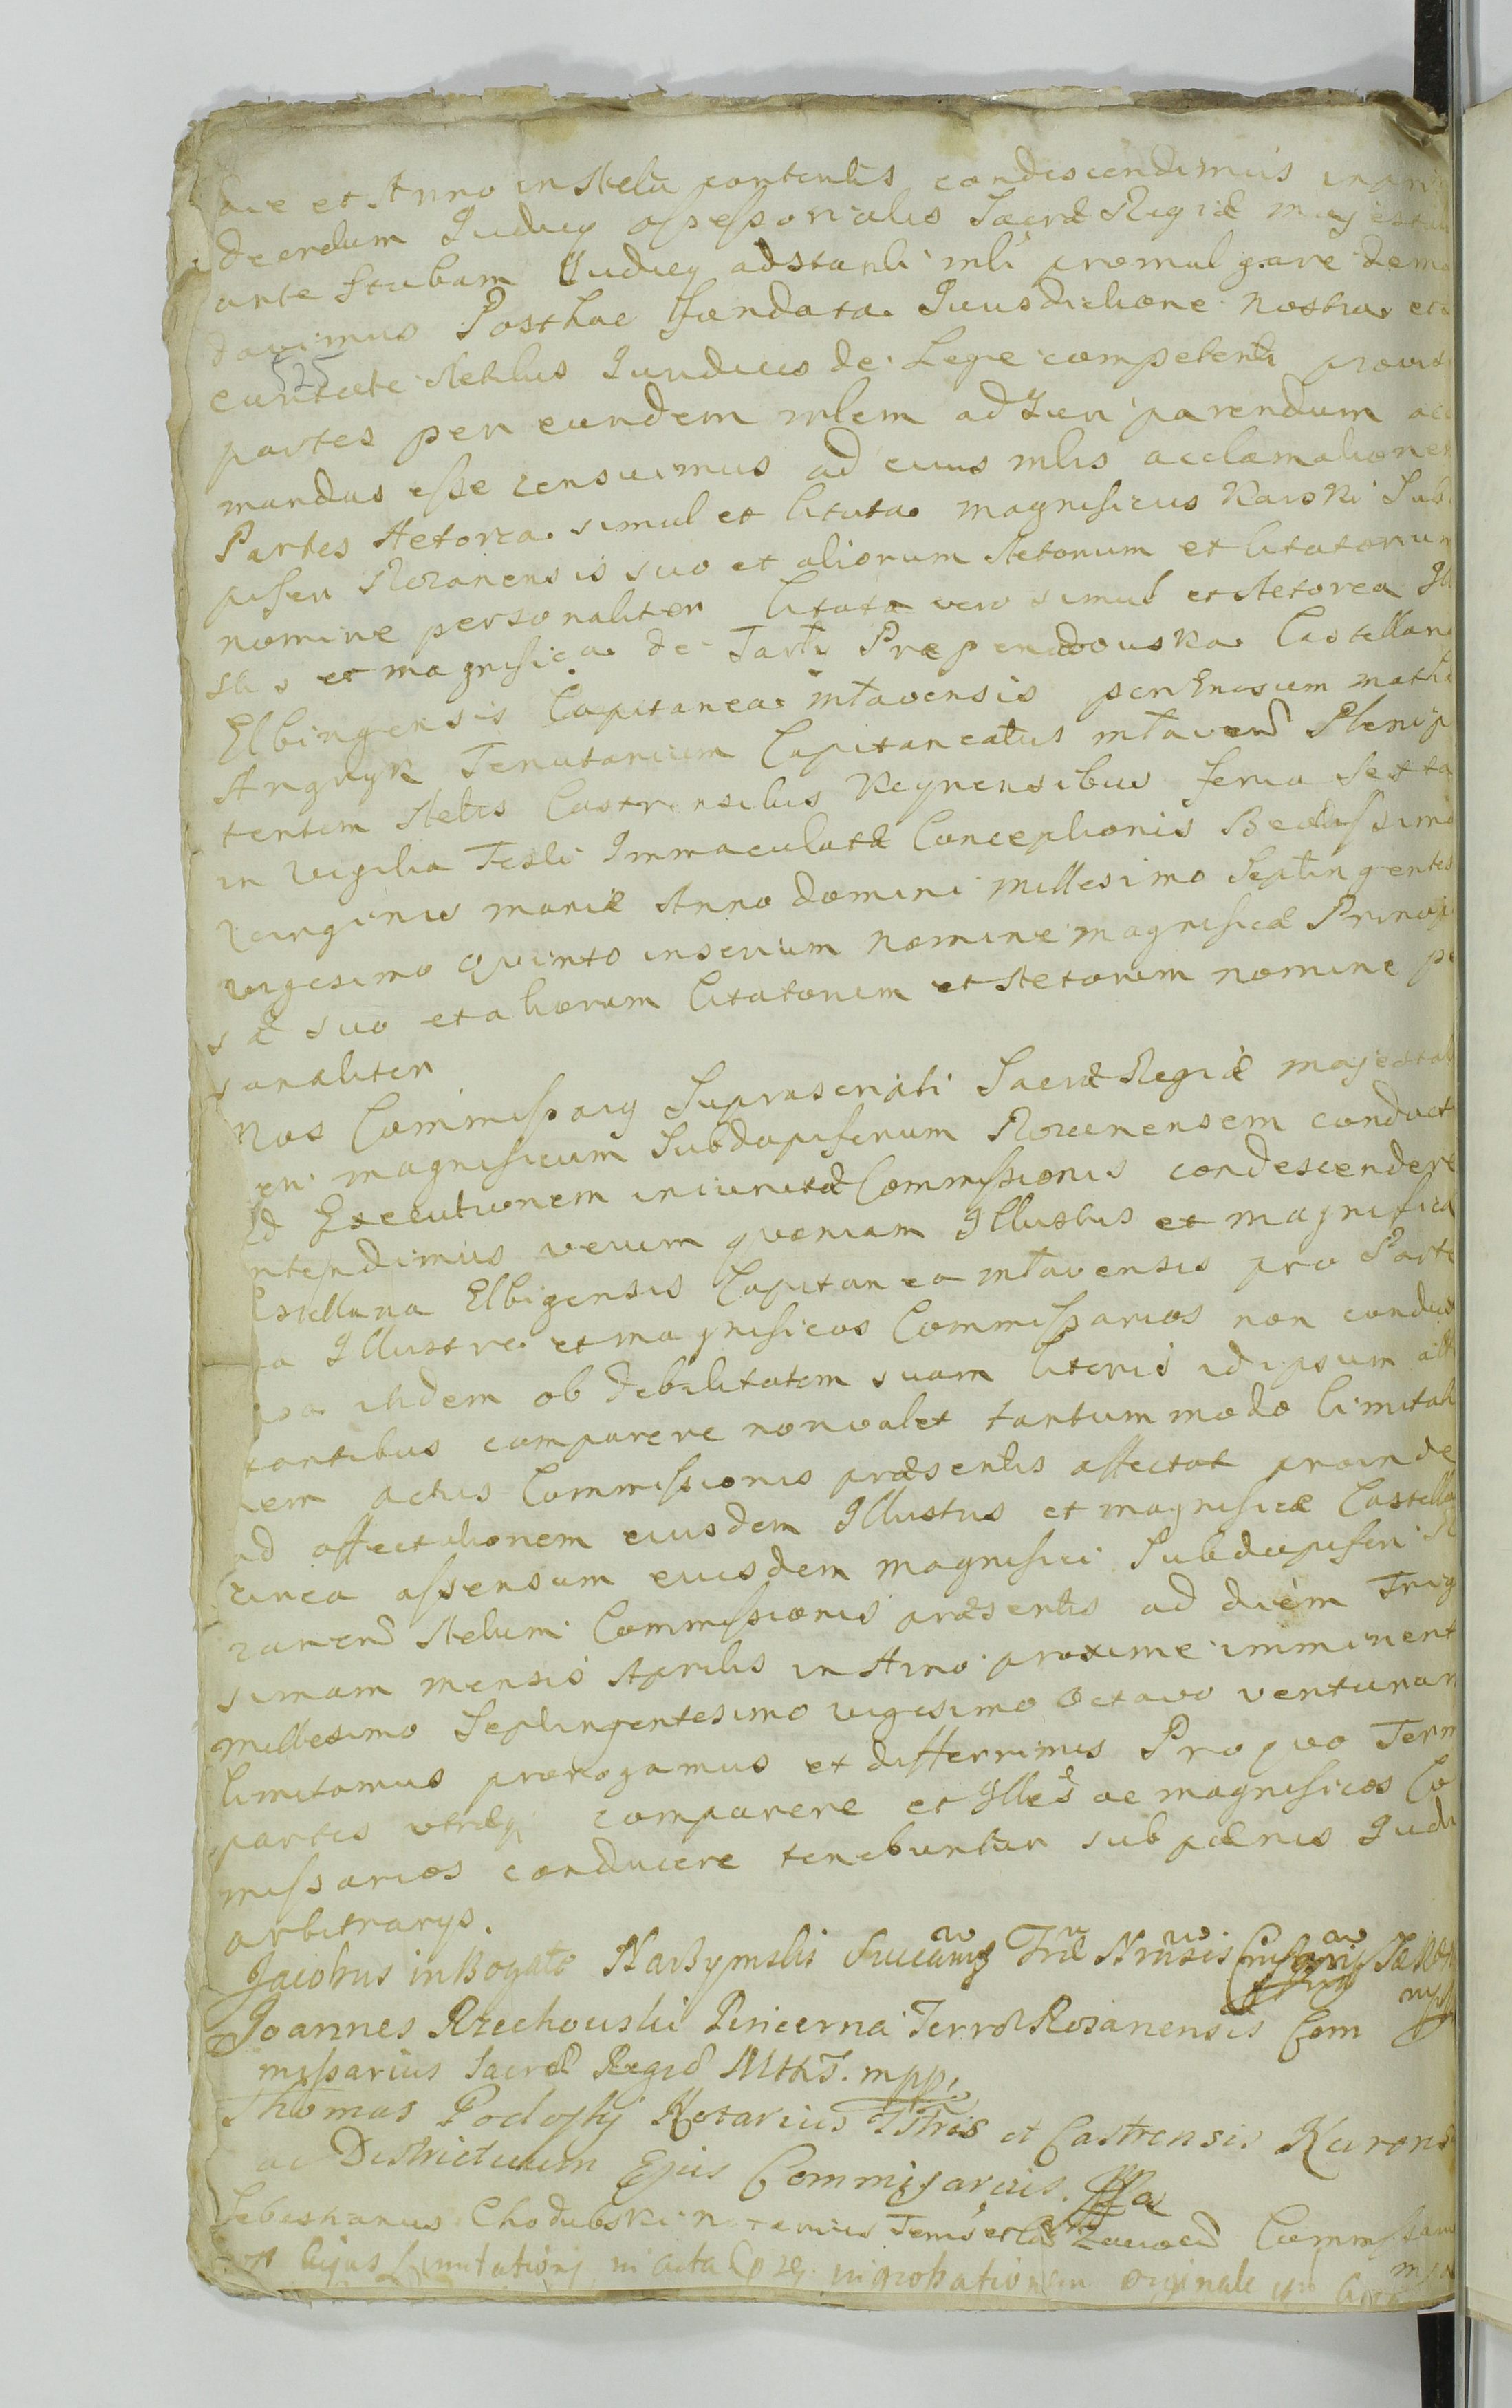 die et Anno in Actu contentis condescendimus
decretum Judicy assessorialis Sacræ Regiæ majestatis
ante stubam Judicy adstanti mli promulgare deman
davimus Posthac fundata Jurisdictione nostra
525
eunte Actibus Juridicis de Lege competenti
partes per eundem mlem ad Juri parendum
mandas esse censuimus ad cuius mlis acclamationem
Partes Actorea simul et Citata magnificus Karski Sub
piferi Rozanensis suo et aliorum Actorum et Citatorum
nomine personaliter Citata vero simul et Actorea
stris et magnifica de Tarły Prependowska Castellana
Elbingensis Capitanea mtavensis per Gnosum
Arguyn Tenutarium Capitaneatus mtaven
tentem Actis Castrensibus Keynensibus feria Sexta
in vigilia Festi Immaculatæ Conceptionis Beatissimæ
Virginis mariæ Anno domini millesimo Septingentes
vigesimo quinto inserium nomine magnificæ Princip
s æ suo et aliorum Citatorum et Actorum nomine
sonaliter
Nos Commissarij Suprascripti Sacræ Regiæ majestatis
magnificum Subdapiferum Rozanensem conducti
Executionem iniunctæ Commissionis condescendere
ntendimus verum quoniam Illustris et magnifica
stellana Elbigensis Capitanea mtavensis pro Parte
Illustres et magnificos Commissarios non
itidem ob debilitatem suam literis id ipsum
tantibus comparere non valet tantummodo limitati
nem actus Commissionis præsentis affectat proinde
ad affectationem eiusdem Illustris et magnificæ Castella
circa assensum eiusdem magnifici Subdapiferi
zanen Actum Commissionis præsentis ad diem Trige
simam mensis Aprilis in Anno proxime imminent
millesimo Septingentesimo vigesimo octavo venturam
limitamus prorogamus et differrimus Pro quo Term
partes utræq comparere et Illes ac magnificos Co
missarios conducere tenebuntur sub pænis Judi
arbitrarys.
Jacobus in Bogate Narzymski
Joannes Rzechowski Pincerna Terræ Rozanensis Com
missarius Sacræ Regiæ Mttis. mpp.
Thomas Podoski Notarius Ttris et Castrensis
ac Districtuum Ejus Commissarius.
Sebestianus Chodubski
Limitationis in acta originale